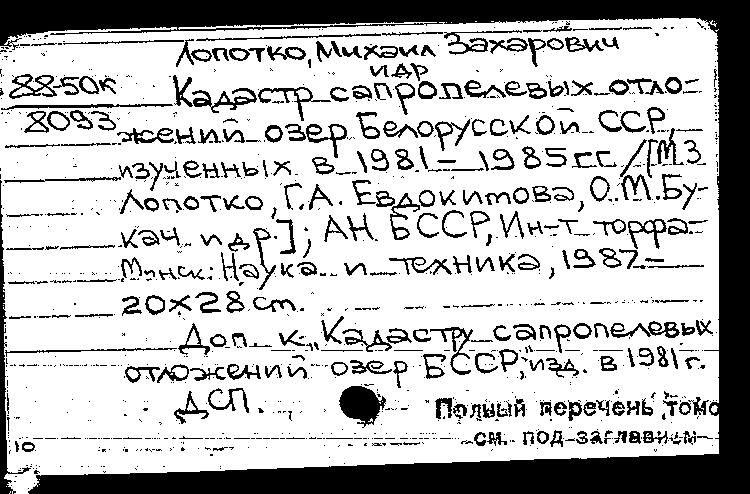 Лопотко, Михаил Захарович
и др
88-50к
8093
Кадастр сапропелевых отло-
жений озер Белорусской ССР,
изученных в 1981 – 1985 гг. / [М.З
Лопотко, Г.А. Евдокимова, О.М. Бу-
кач и др.]; АН БССР, Ин-т торфа. –
Минск: Наука и техника, 1987. –
20×28 cm.
Доп. к „Кадастру сапропелевых
отложений озер БССР", изд. в 1981 г.
ДСП.
Полный перечень томо
см. под заглавием
10